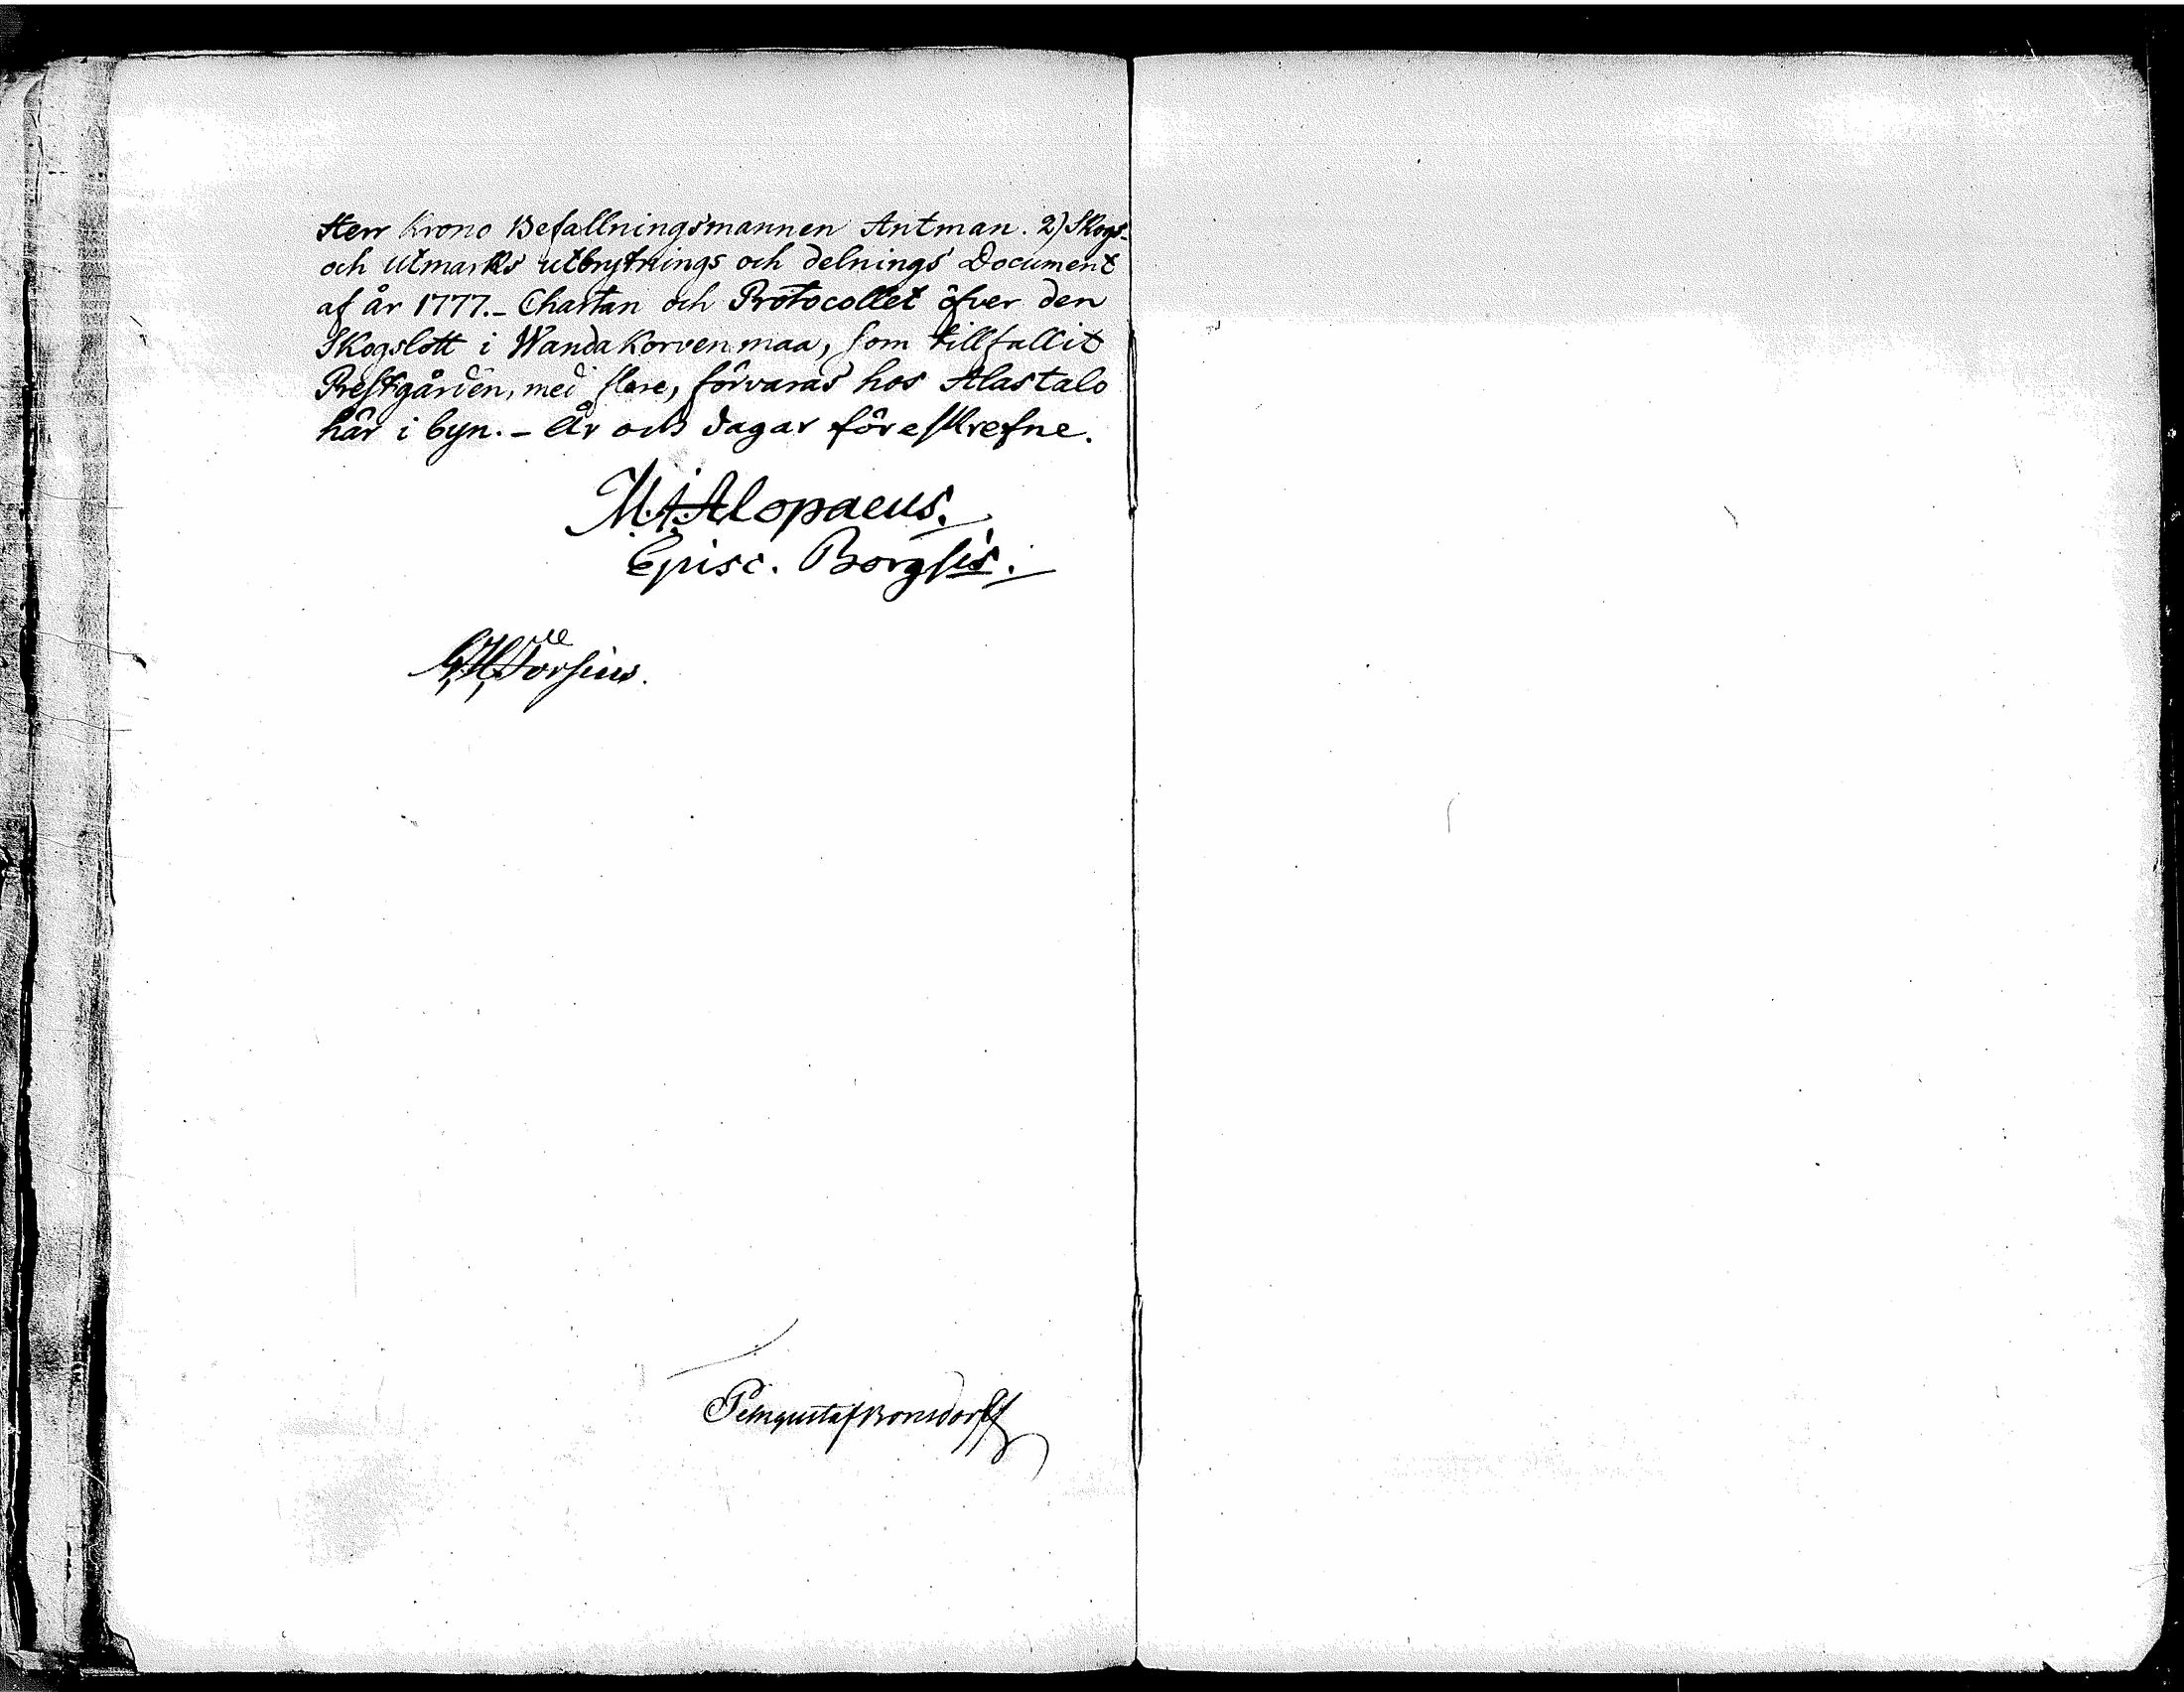 Herr Krono Befallningsmannen Antman. 2) Skogs-
och Utmarks utbrytnings och delnings Document
af år 1777. - Chartan och Protocollet öfver den
Skogslott i Wanda Korvenmaa, som tillfallit
Prestgården, med flere, förvaras hos Alastalo
här i byn. - År och dagar föreskrefne.
M. Alopaeus.
Episc. Borgsis.
Gustaf Bonsdorff